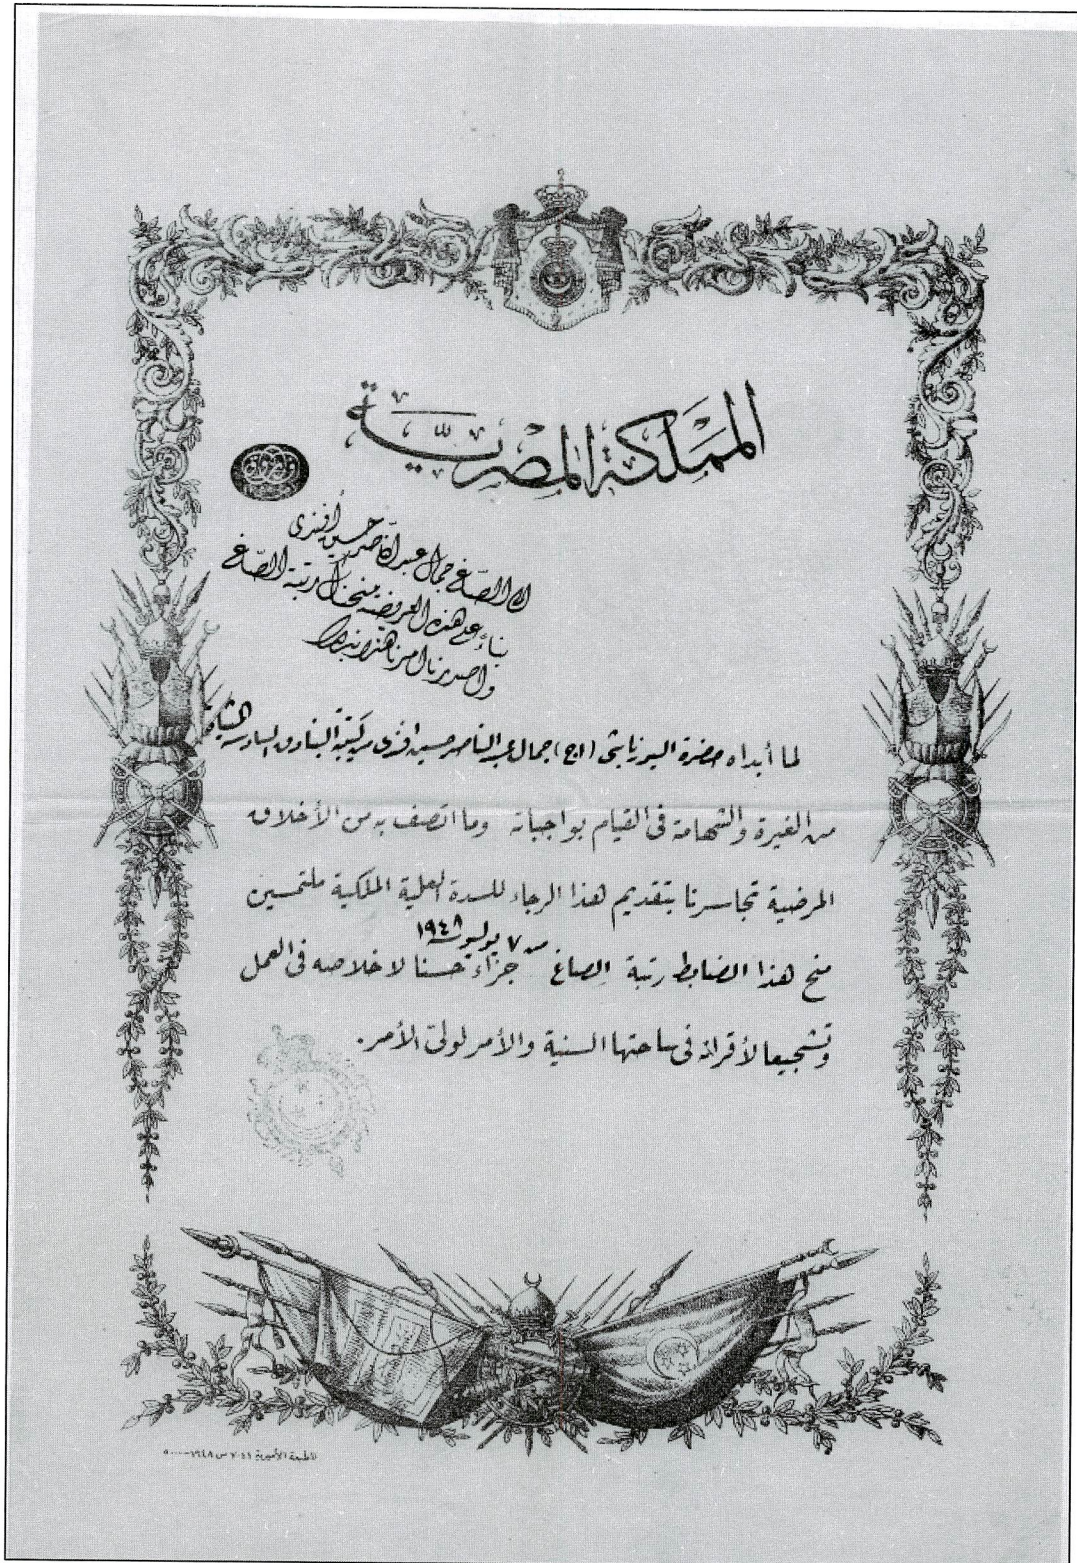 المملكة المصرية
فاروق
الى الصاغ جمال عبد الناصر حسين افندى
بناء على هذه العريضة منحناك رتبة الصاغ
واصدرنا امرنا هذا
لما أبداه حضرة اليوزباشى (ا ح) جمال عبد الناصر حسين افندى من كتيبة البنادق السادسة المشاة
من الغيرة والشهامة فى القيام بواجباته وما اتصف به من الأخلاق
المرضية تجاسرنا بتقديم هذا الرجاء للسدة العلية الملكية ملتمسين
من ٧ يوليو سنة ١٩٤٨
منح هذا الضابط رتبة الصاغ جزاء حسنا لاخلاصه فى العمل
وتشجيعا لأقرانه فى ساحتها السنية والأمر لولى الأمر.
المطبعة الأميرية